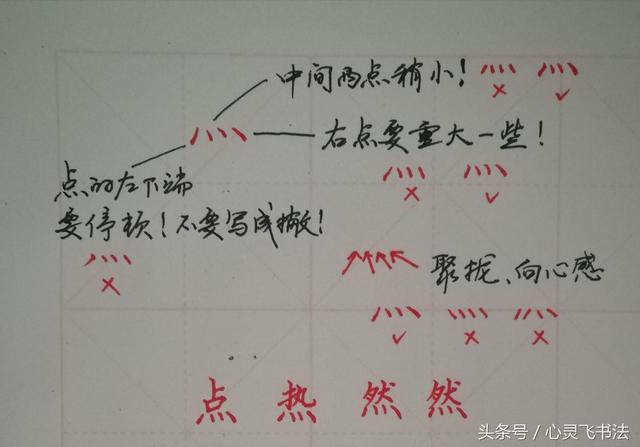 中间两点稍小！
右点要重大一些！
点的左下端
要停顿！不要写成撇！
聚拢、向心感
点 热 然 然
头条号 / 心灵飞书法